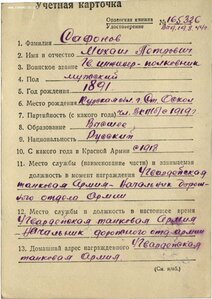 Учетная карточка
Орденская книжка № 165336
Удостоверение
1. Фамилия Сафонов
2. Имя и отчество Михаил Петрович
3. Воинское звание полковник
4. Пол мужской
5. Год рождения 1891
6. Место рождения Курская обл г Ст. Оскол
7. Партийность (с какого года) чл. ВКП(б) с 1919г
8. Образование Высшее
9. Национальность Русский
10. С какого года в Красной Армии с 1918
11. Место службы (наименование части) и занимаемая
должность в момент награждения Гвардейская
танковая Армия Начальник дорож-
ного отдела Армии
12. Место службы и должность в настоящее время
Гвардейская танковая Армия
Начальник дорожного отд. армии
13. Домашний адрес награжденного Гвардейская
танковая Армия.
(См. на об.)